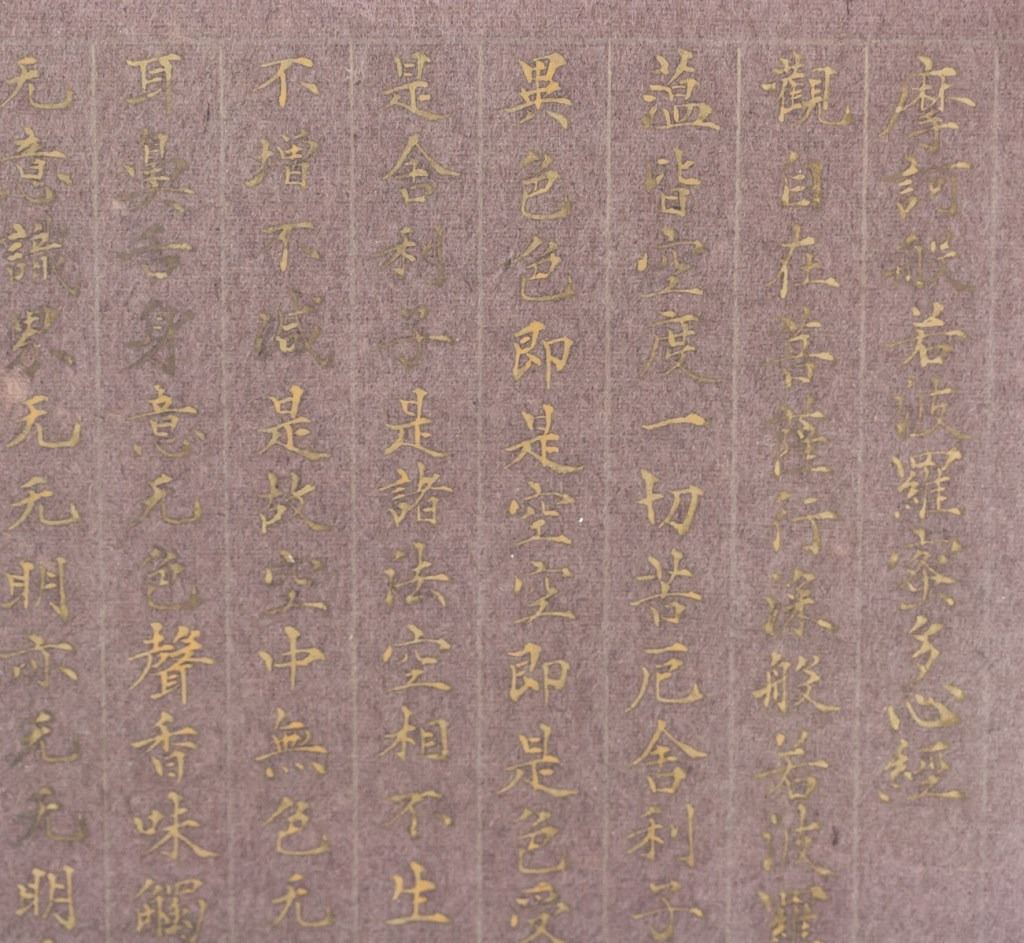 摩訶般若波羅蜜多心經
觀自在菩薩行深般若波羅
蘊皆空度一切苦厄舍利子
異色色即是空空即是色受
是舍利子是諸法空相不生
不增不減是故空中無色无
耳鼻舌身意无色聲香味觸
无意識界无无明亦无无明